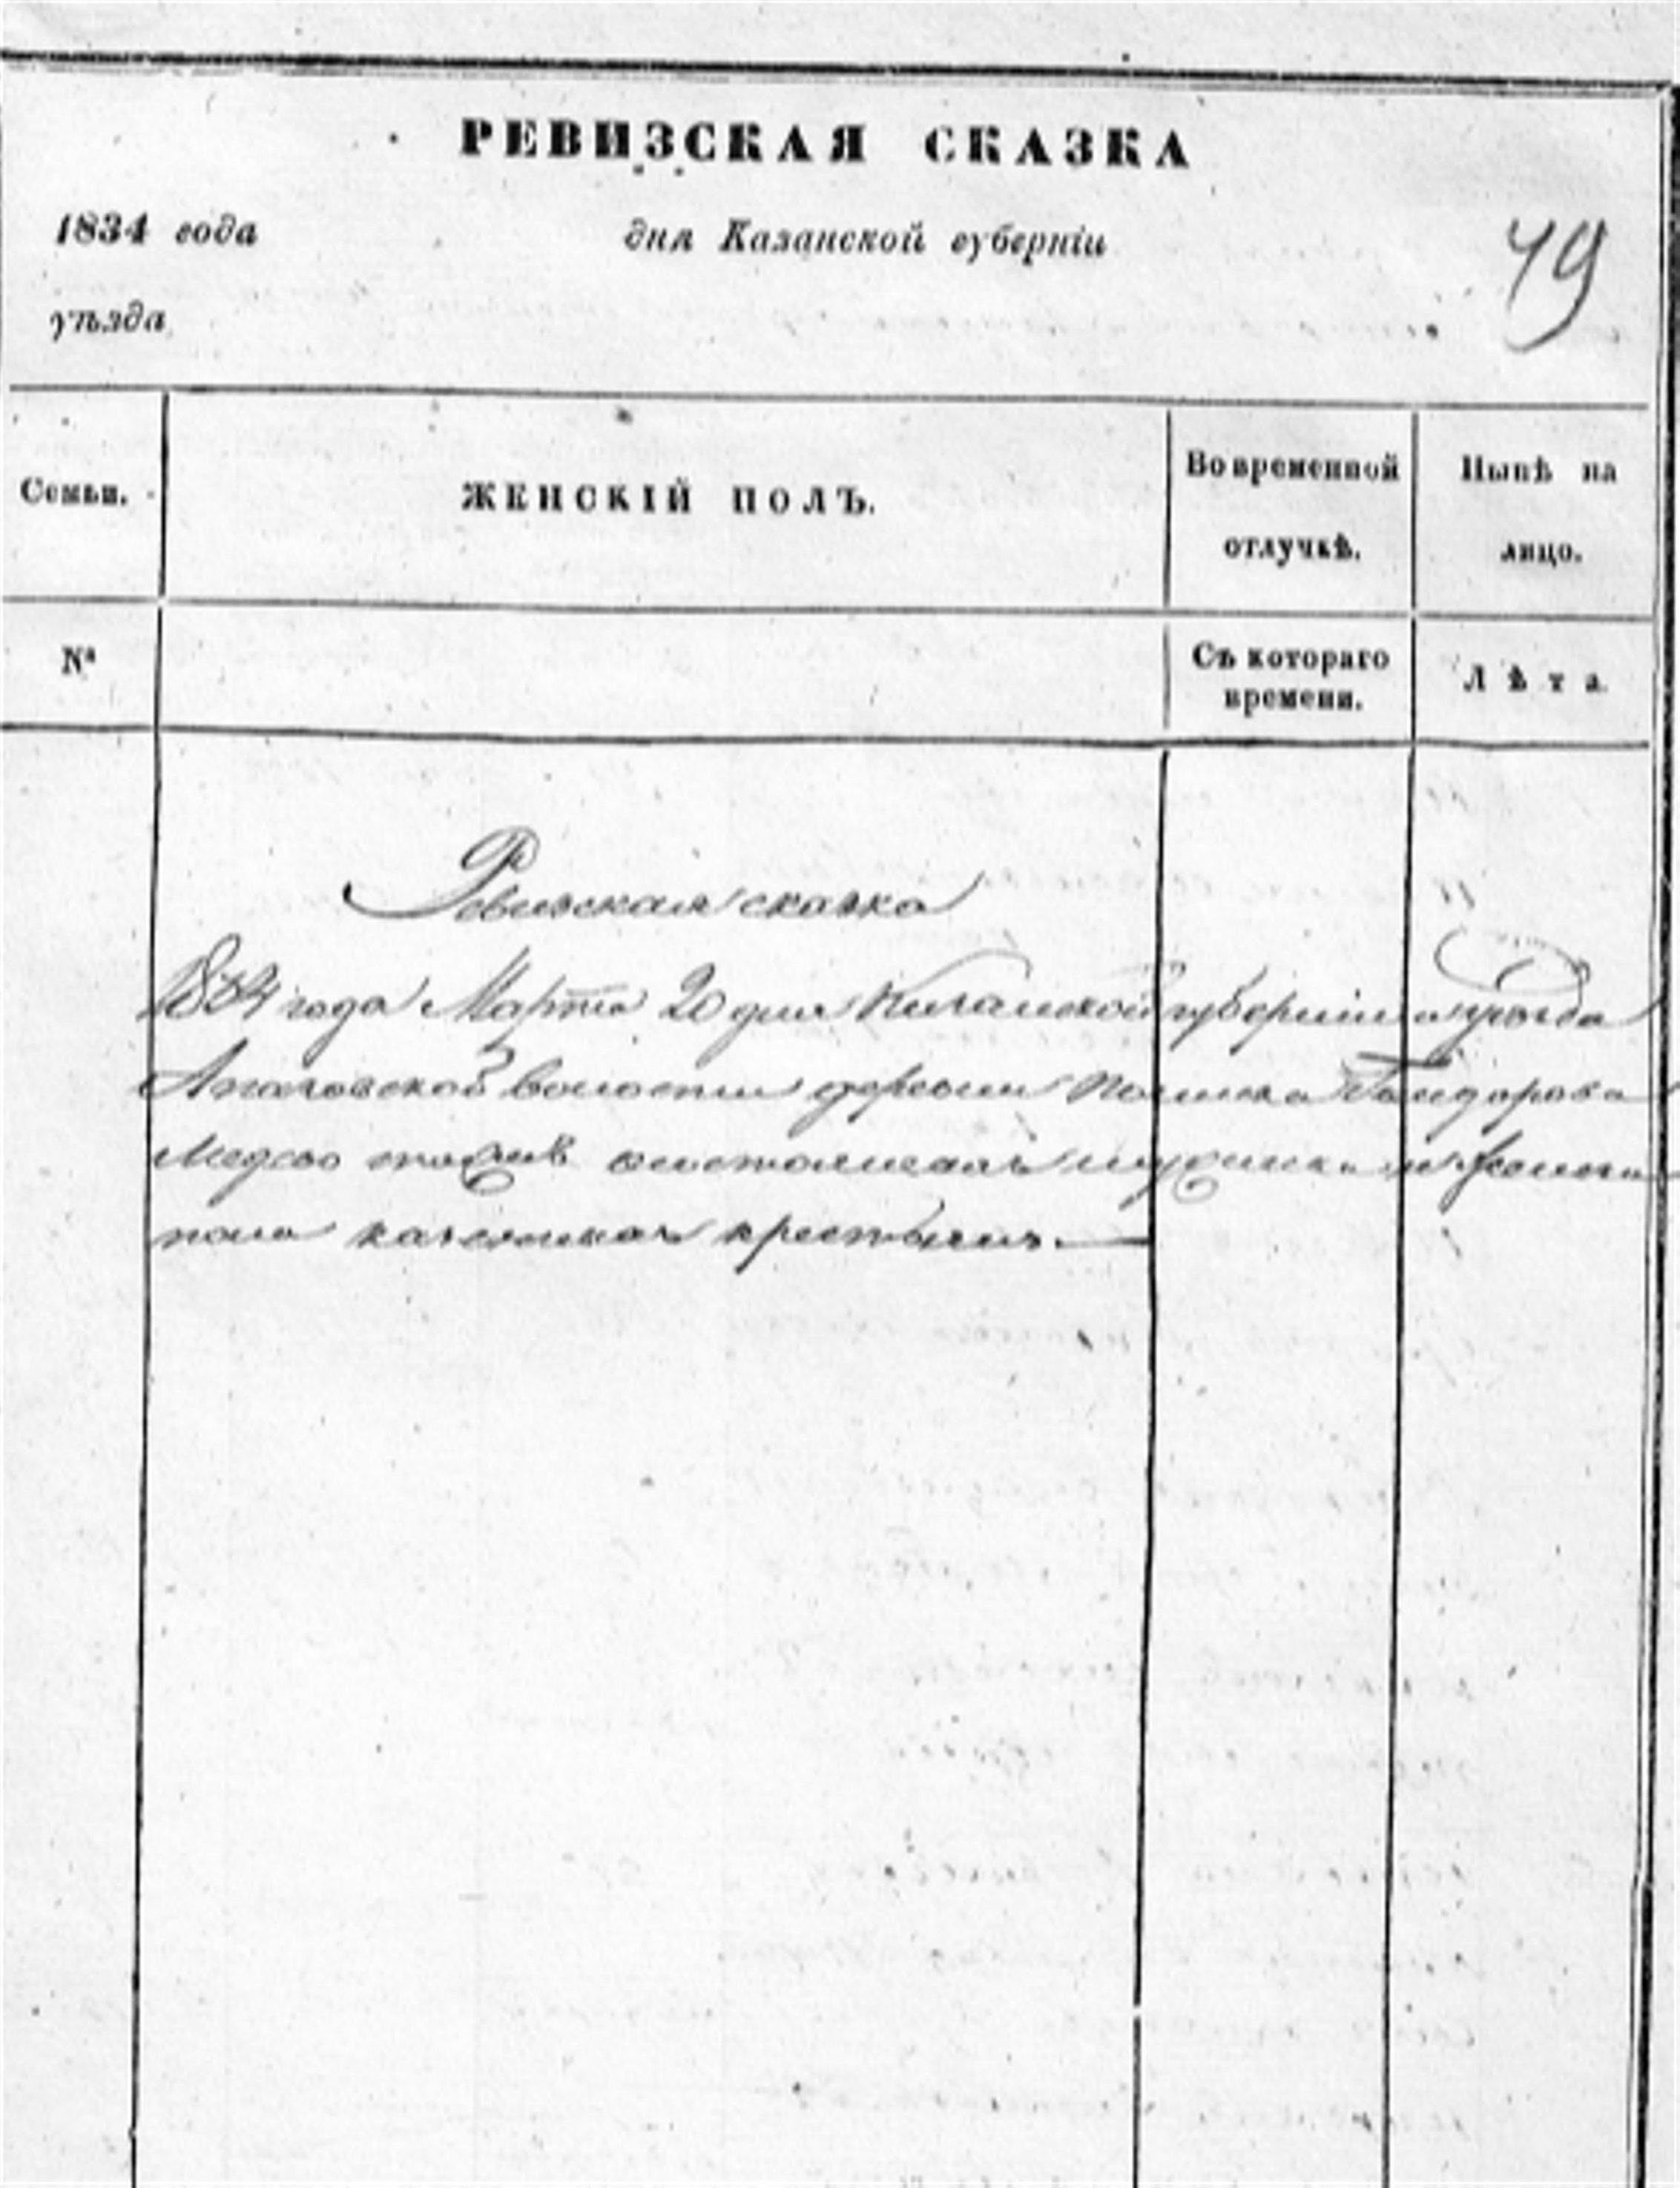 РЕВИЗСКАЯ СКАЗКА
1834 года дня Казанской губерніи 49
уѣзда
Семьи. ЖЕНСКІЙ ПОЛЪ. Во временной отлучкѣ. Нынѣ на лицо.
№ Съ котораго времени. Лѣта.
Ревизская сказка
1834 года Марта 20 дня Казанской губерніи и уѣзда
волости деревни
мужска и женска
пола казенныхъ крестьянъ.